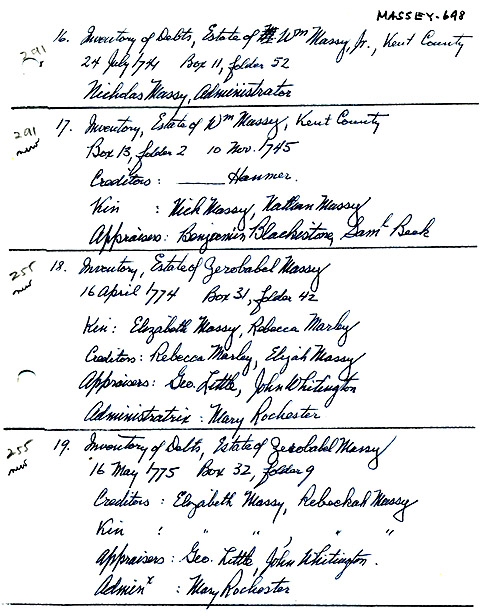 MASSEY-698
291, 16. Inventory of Debts, Estate of Wm Massy, Jr., Kent County
24 July 1741 Box 11, folder 52
Nicholas Massy, Administrator
291 new 17. Inventory, Estate of Wm Massy, Kent County
Box 13, folder 2 10 Nov. 1745
Creditors: ____ Hanmer.
Kin : Nich Massy, Nathan Massy
Appraisers: Benjamin Blackistone, Saml Beck
255 new 18. Inventory, Estate of Zerobabel Massy
16 April 1774 Box 31, folder 42
Kin: Elizabeth Massy, Rebecca Marley
Creditors: Rebecca Marley, Elijah Massy
Appraisers: Geo. Little, John Whitington
Administratrix: Mary Rochester
255 new 19. Inventory of Debts, Estate of Zerobabel Massy
16 May 1775 Box 32, folder 9
Creditors: Elizabeth Massy, Rebeckah Massy
Kin : " " , " "
Appraisers: Geo. Little, John Whitington.
Adminx : Mary Rochester